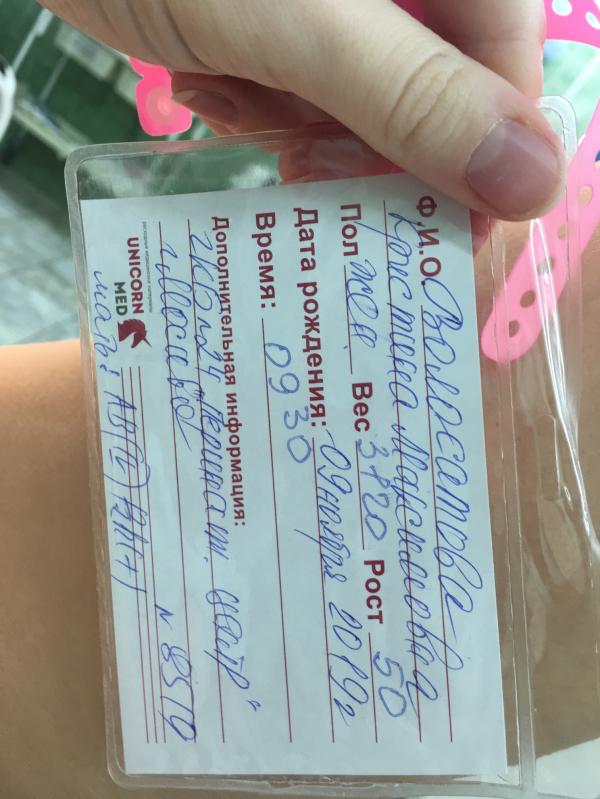 Ф.И.О. Волосатова
Кристина Максимовна
Пол жен Вес 3120 Рост 50
Дата рождения: 09 ноября 2019г
Время: 09 30
Дополнительная информация:
ГКБ №24 перинат. центр"
г. Москва N 8519
UNICORN
MED
мать: AB(IV) Rh(+)